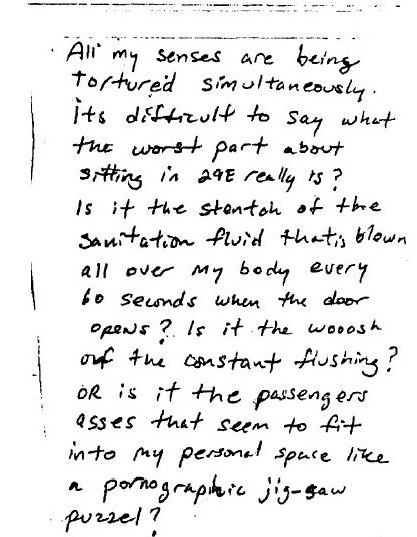 All my senses are being
tortured simultaneously.
its difficult to say what
the worst part about
sitting in 29E really is?
Is it the stentch of the
sanitation fluid that is blown
all over my body every
60 seconds when the door
opens? Is it the wooosh
of the constant flushing?
OR is it the passengers
asses that seem to fit
into my personal space like
a pornographic jig-saw
puzzel?